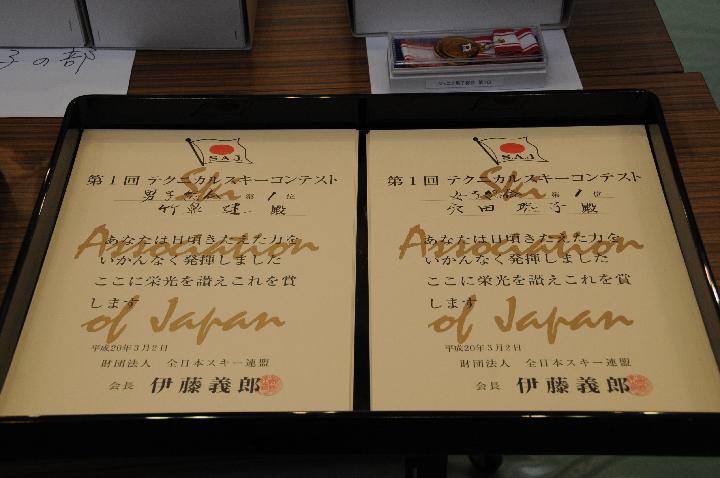 子の部
ジュニア男子総合 第1位
S.A.J
第1回 テクニカルスキーコンテスト
男子総合 第 1 位
竹泉 建二 殿
あなたは日頃きたえた力を
いかんなく発揮しました
ここに栄光を讃えこれを賞
します
Ski
Association
of Japan
平成20年3月2日
財団法人 全日本スキー連盟
会長 伊藤義郎
S.A.J
第1回 テクニカルスキーコンテスト
女子総合 第 1 位
穴田 聡子 殿
あなたは日頃きたえた力を
いかんなく発揮しました
ここに栄光を讃えこれを賞
します
Ski
Association
of Japan
平成20年3月2日
財団法人 全日本スキー連盟
会長 伊藤義郎